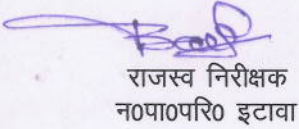 राजस्व निरीक्षक
न0पा0परि0 इटावा